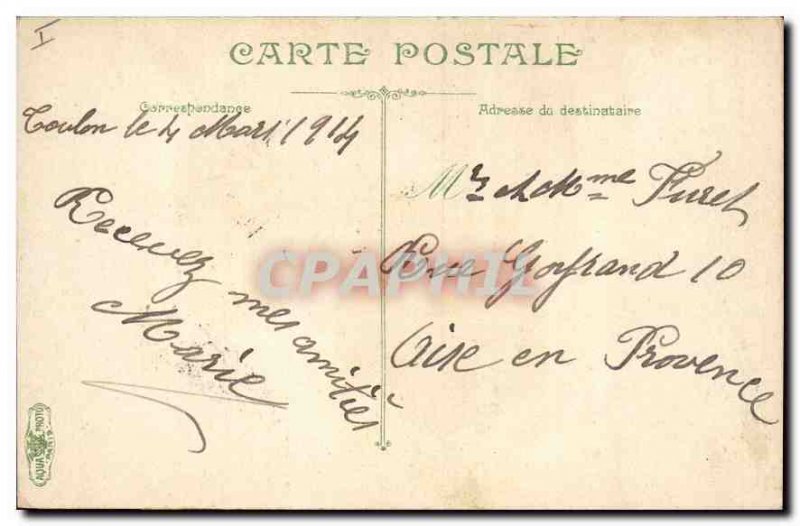 I
CARTE POSTALE
Correspondance
Adresse du destinataire
Toulon le 4 Mars 1914
Recevez mes amitiés
Marie
Mr et Mme Furet
Rue 10
Aise en Provence
CPAPHIL
AQUA PHOTO